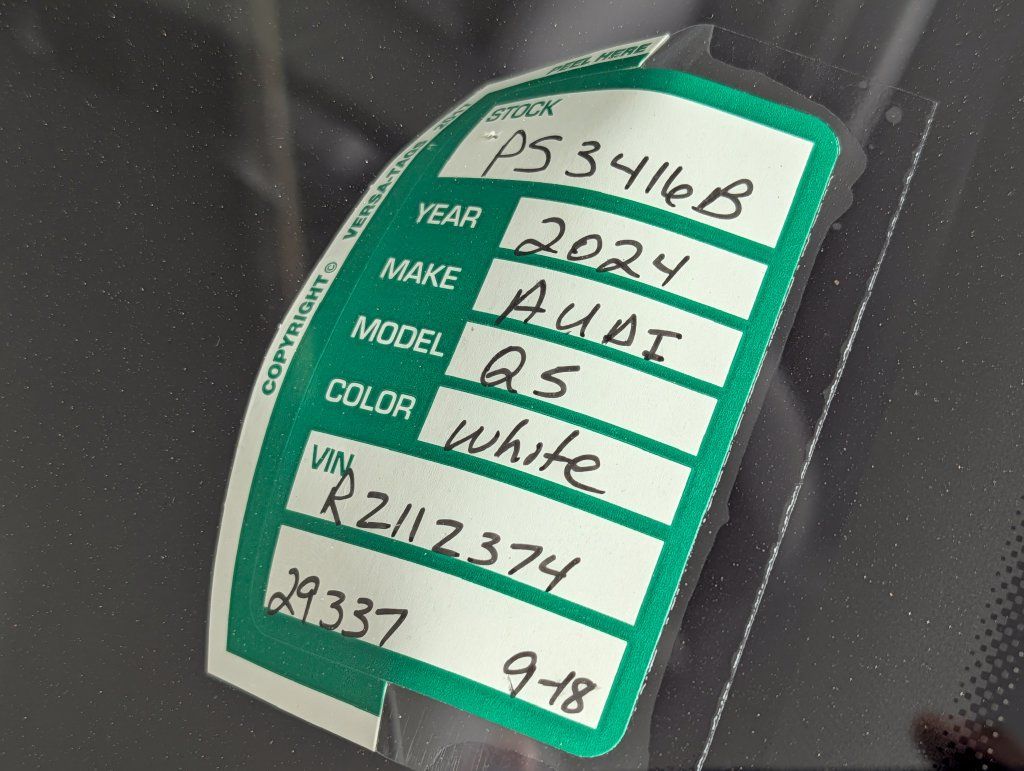 PEEL HERE
STOCK
PS3416B
YEAR 2024
MAKE AUDI
MODEL Q5
COLOR white
VIN
RZ112374
29337
9-18
COPYRIGHT© VERSA-TAGS